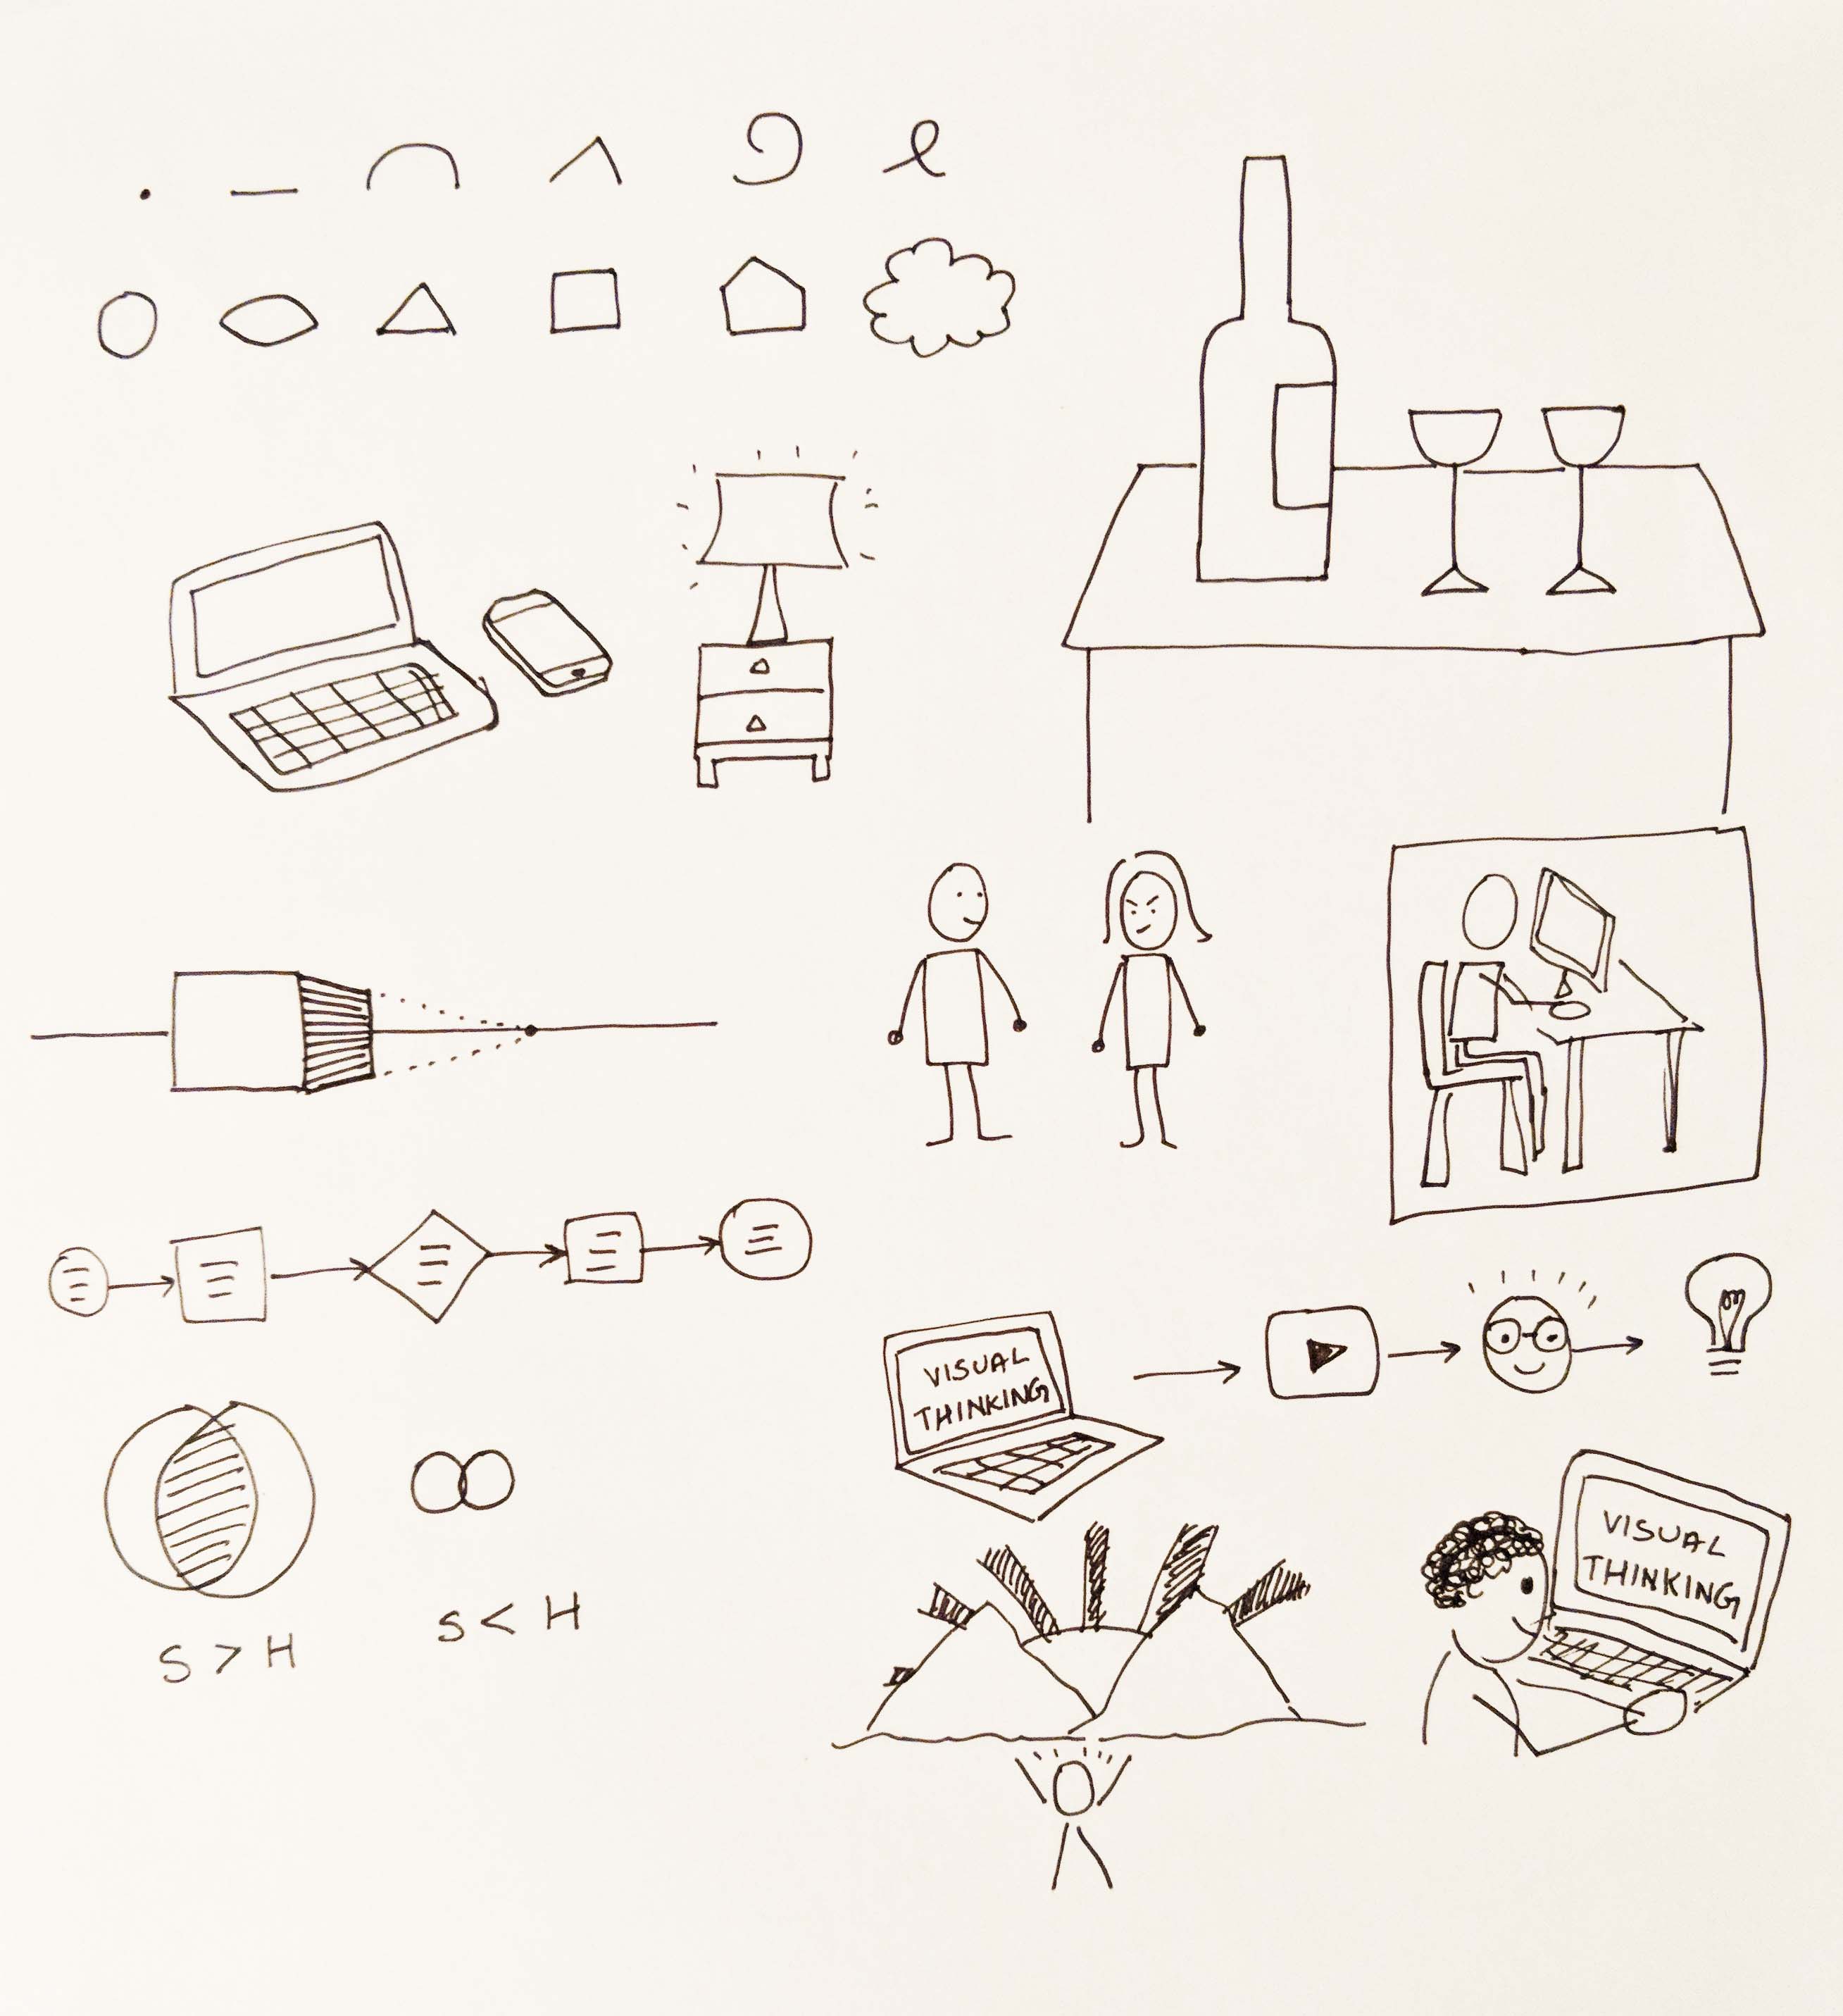 VISUAL
THINKING
S > H
S < H
VISUAL
THINKING